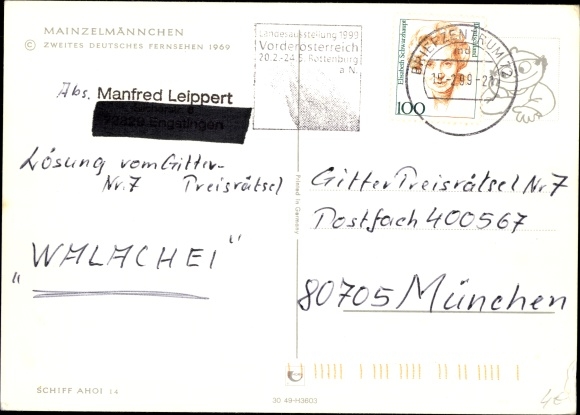 MAINZELMÄNNCHEN
© ZWEITES DEUTSCHES FERNSEHEN 1969
Landesausstellung 1999
Vorderösterreich
20.2.-24.5. Rottenburg
a.N.
Elisabeth Schwarzhaupt
100
BRIEFZENTRUM 72
Abs. Manfred Leippert
72829 Engstingen
Lösung vom Gitter-
Nr. 7 Preisrätsel
"WALACHEI"
Printed in Germany
Gitter Preisrätsel Nr 7
Postfach 400567
80705 München
SCHIFF AHOI 14
30 49-H3603